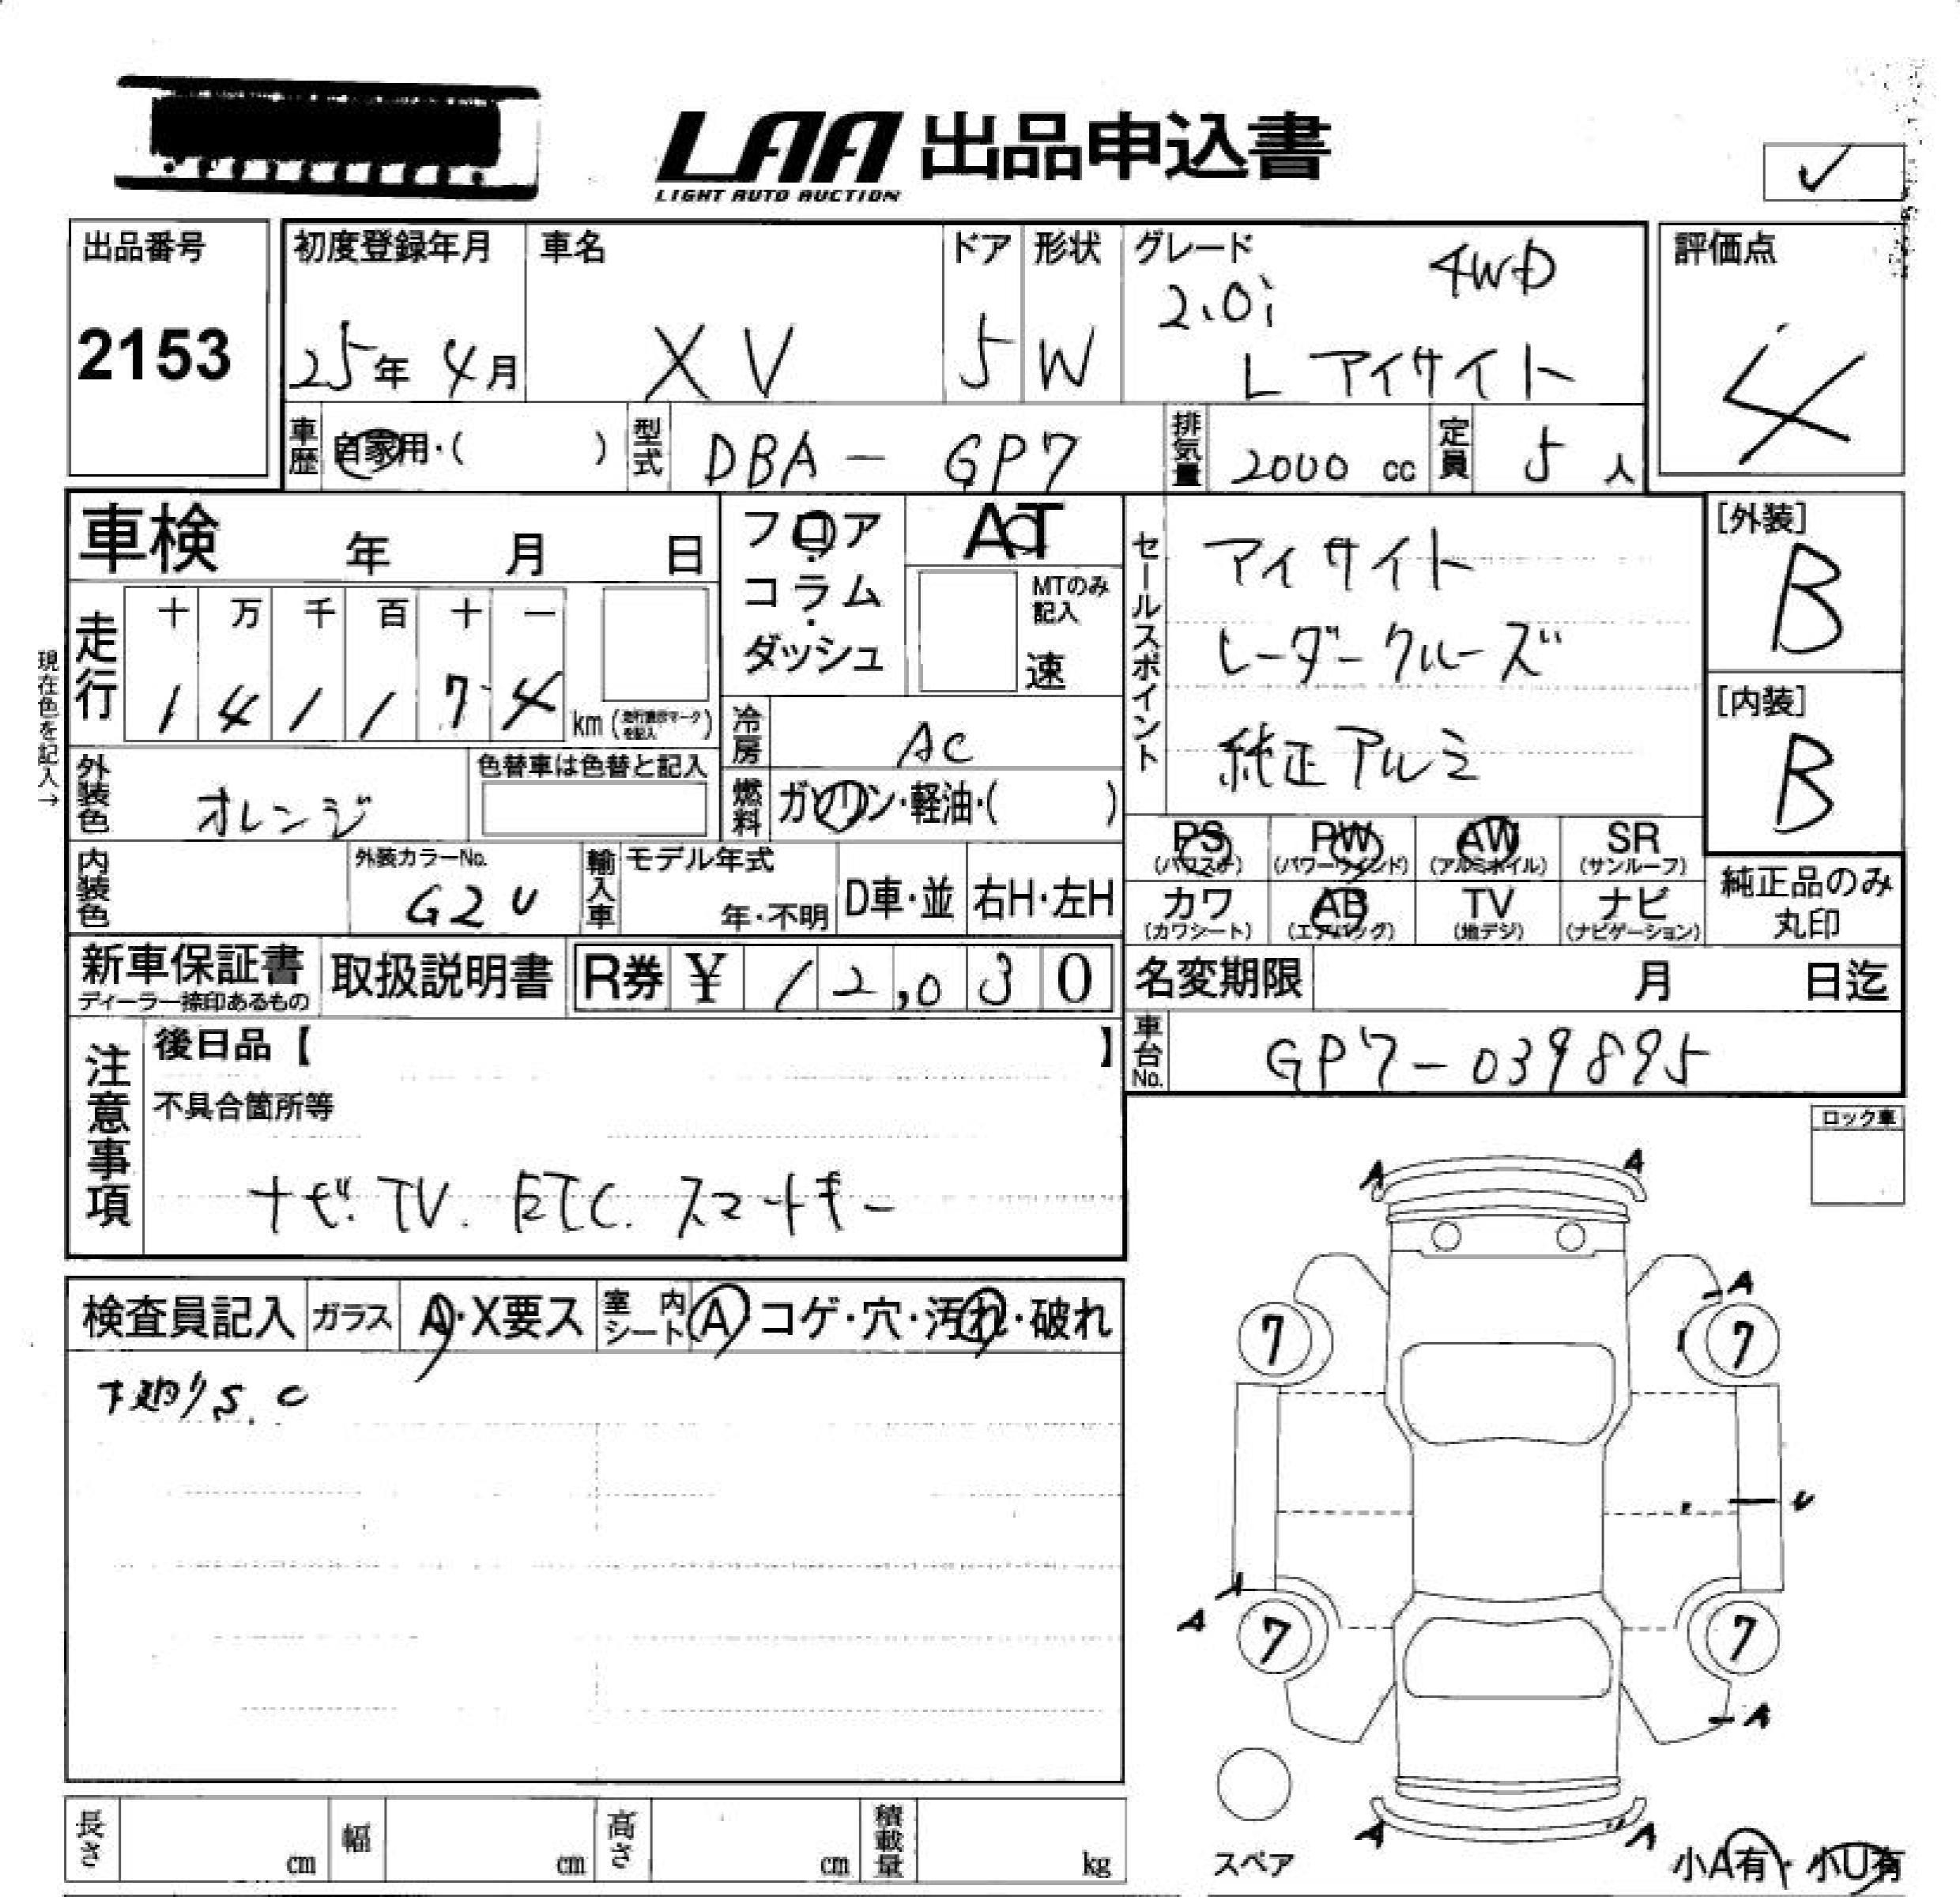 LAA 出品申込書
LIGHT AUTO AUCTION
✓
出品番号
2153
初度登録年月
25年 4月
車名
XV
ドア
5
形状
W
グレード
4WD
2.0i
L アイサイト
評価点
4
車歴
自家用・( )
型式
DBA - GP7
排気量
2000 cc
定員
5 人
車検 年 月 日
フロア・コラム・ダッシュ
AT
MTのみ記入
速
現在色を記入→
走行
十 万 千 百 十 一
1 4 1 1 7 4 km
冷房
AC
外装色
オレンジ
色替車は色替と記入
燃料
ガソリン・軽油・( )
セールスポイント
アイサイト
レーダークルーズ
純正アルミ
[外装]
B
[内装]
B
PS
(パワステ)
PW
(パワーウインド)
AW
(アルミホイル)
SR
(サンルーフ)
カワ
(カワシート)
AB
(エアバッグ)
TV
(地デジ)
ナビ
(ナビゲーション)
純正品のみ
丸印
内装色
外装カラーNo.
G2U
輸入車
モデル年式
年・不明
D車・並
右H・左H
新車保証書
ディーラー捺印あるもの
取扱説明書
R券 ¥ 12,030
名変期限 月 日迄
車台No.
GP7-039895
注意事項
後日品【 】
不具合箇所等
ナビ. TV. ETC. スマートキー
ロック車
検査員記入
ガラス
A・X要ス
室内シート
A コゲ・穴・汚れ・破れ
下廻りS.C
A A
A
7 7
U
A
A
7 7
A
A A
スペア
小A有・小U有
長さ cm
幅 cm
高さ cm
積載量 kg